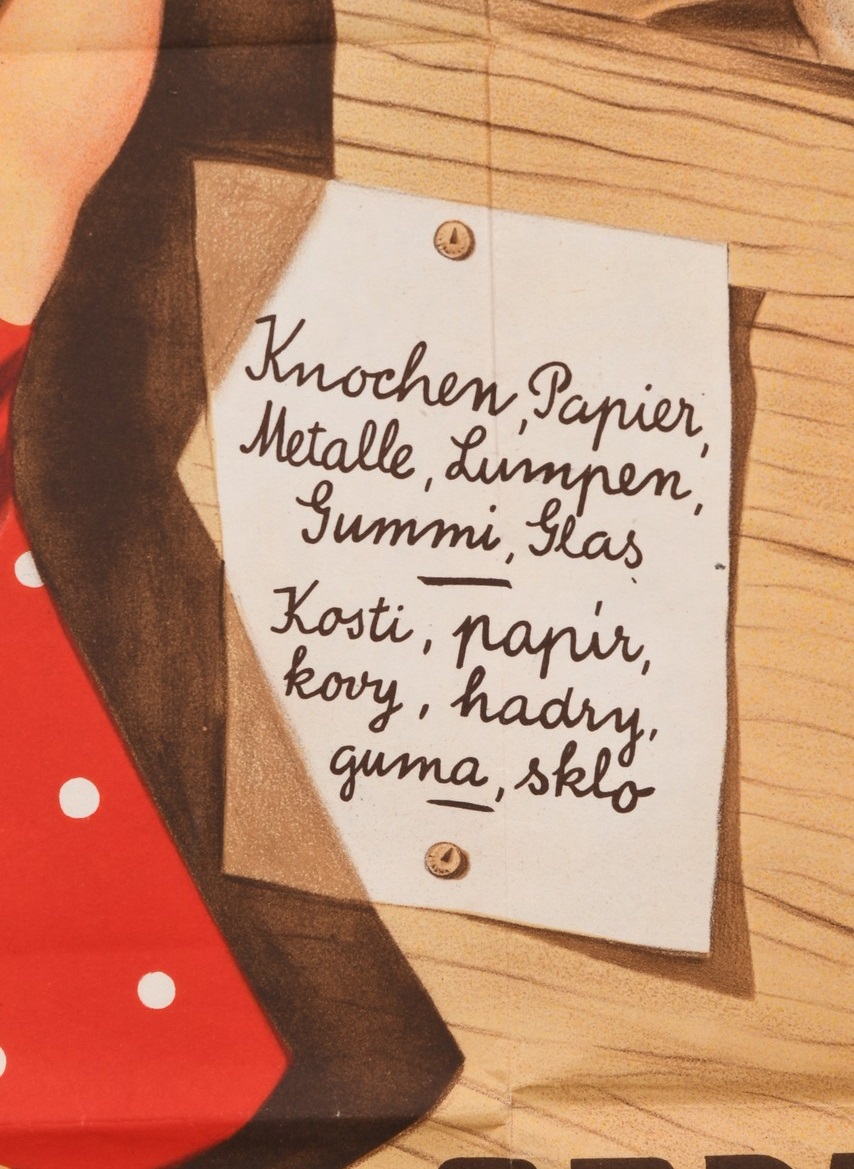 Knochen, Papier,
Metalle, Lumpen,
Gummi, Glas
Kosti, papír,
kovy, hadry,
guma, sklo